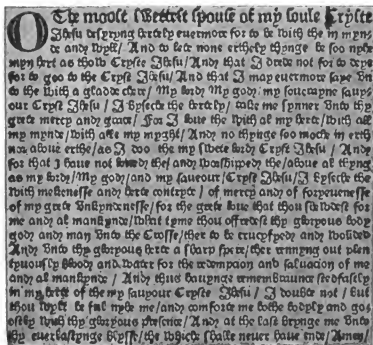 O The moost swettest spouse of my soule Cryste
Jhesu desyryng hertely euermore for to be with the in myn-
de and wyll / And to lete none erthely thynge be soo nyghe
myn hert as thow Cryste Jhesu / And that I drede not for to deye
for to goo to the Cryste Jhesu / And that I may euermore saye vn
to the with a gladde chere / My lord My god my souerayne sauy-
our Cryst Jhesu / I byseche the hertely / take me synner vnto thy
grete mercy and grace / For I loue the with al my herte / with all
my mynde / with alle my myght / And no thynge soo moche in erth
nor aboue erthe / as I doo the my swete lord Cryst Jhesu / And
for that I haue not loued the and worshipped the / aboue al thyng
as my lord / My god / and my saueour / Cryst Jhesu / I byseche the
with mekenesse and herte contryte / of mercy and of foryeuenesse
of my grete vnkyndenesse / for the grete loue that thou shedest for
me and al mankynde / what tyme thou offredest thy gloryous body
god and man vnto the Crosse / ther to be crucyfyed and wounded
And vnto thy gloryous herte a sharp spere / ther rennyng out plen
tyuously blood and water for the redempcion and saluacion of me
and al mankynde / And thus hauynge remembraunce stedfastly
in my herte of the my sauyour Cryste Jhesu / I doubte not / but
thou wylt be ful nyghe me / and comforte me bothe bodyly and gos
tely with thy gloryous presence / And at the last brynge me vnto
thy euerlastynge blysse / the whiche shalle neuer haue ende / Amen /